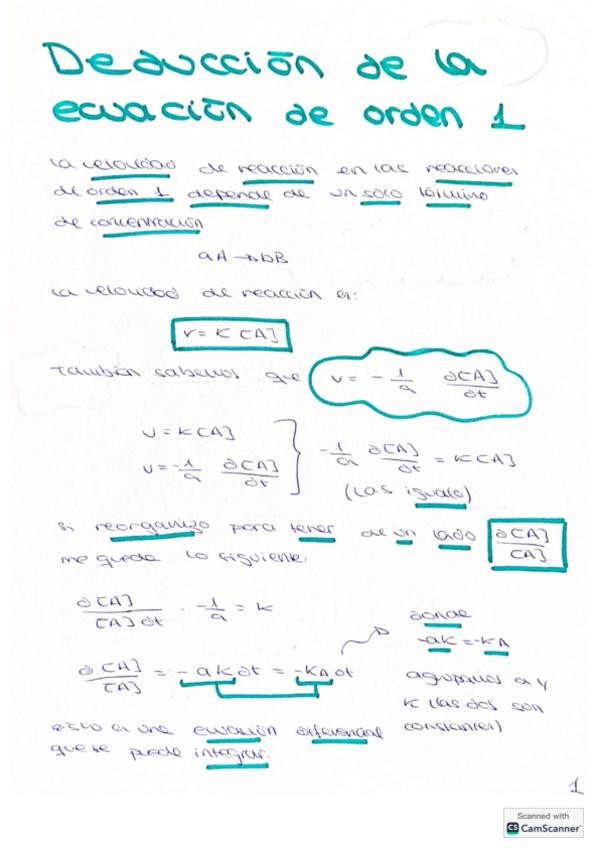 Deducción de la
ecuación de orden 1
La velocidad de reacción en las reacciones
de orden 1 depende de un sólo término
de concentración
aA → bB
La velocidad de reacción es:
v = K [A]
También sabemos que v = - 1/a ∂[A]/∂t
v = K[A]
v = - 1/a ∂[A]/∂t
- 1/a ∂[A]/∂t = K[A]
(Las igualo)
si reorganizo para tener de un lado ∂[A]/[A]
me queda lo siguiente:
∂[A]/[A]∂t · - 1/a = K
∂[A]/[A] = - aK∂t = -KA∂t
donde
-aK = -KA
agrupamos a y
K (las dos son
constantes)
esto es una ecuación diferencial
que se puede integrar.
1
Scanned with
CS CamScanner